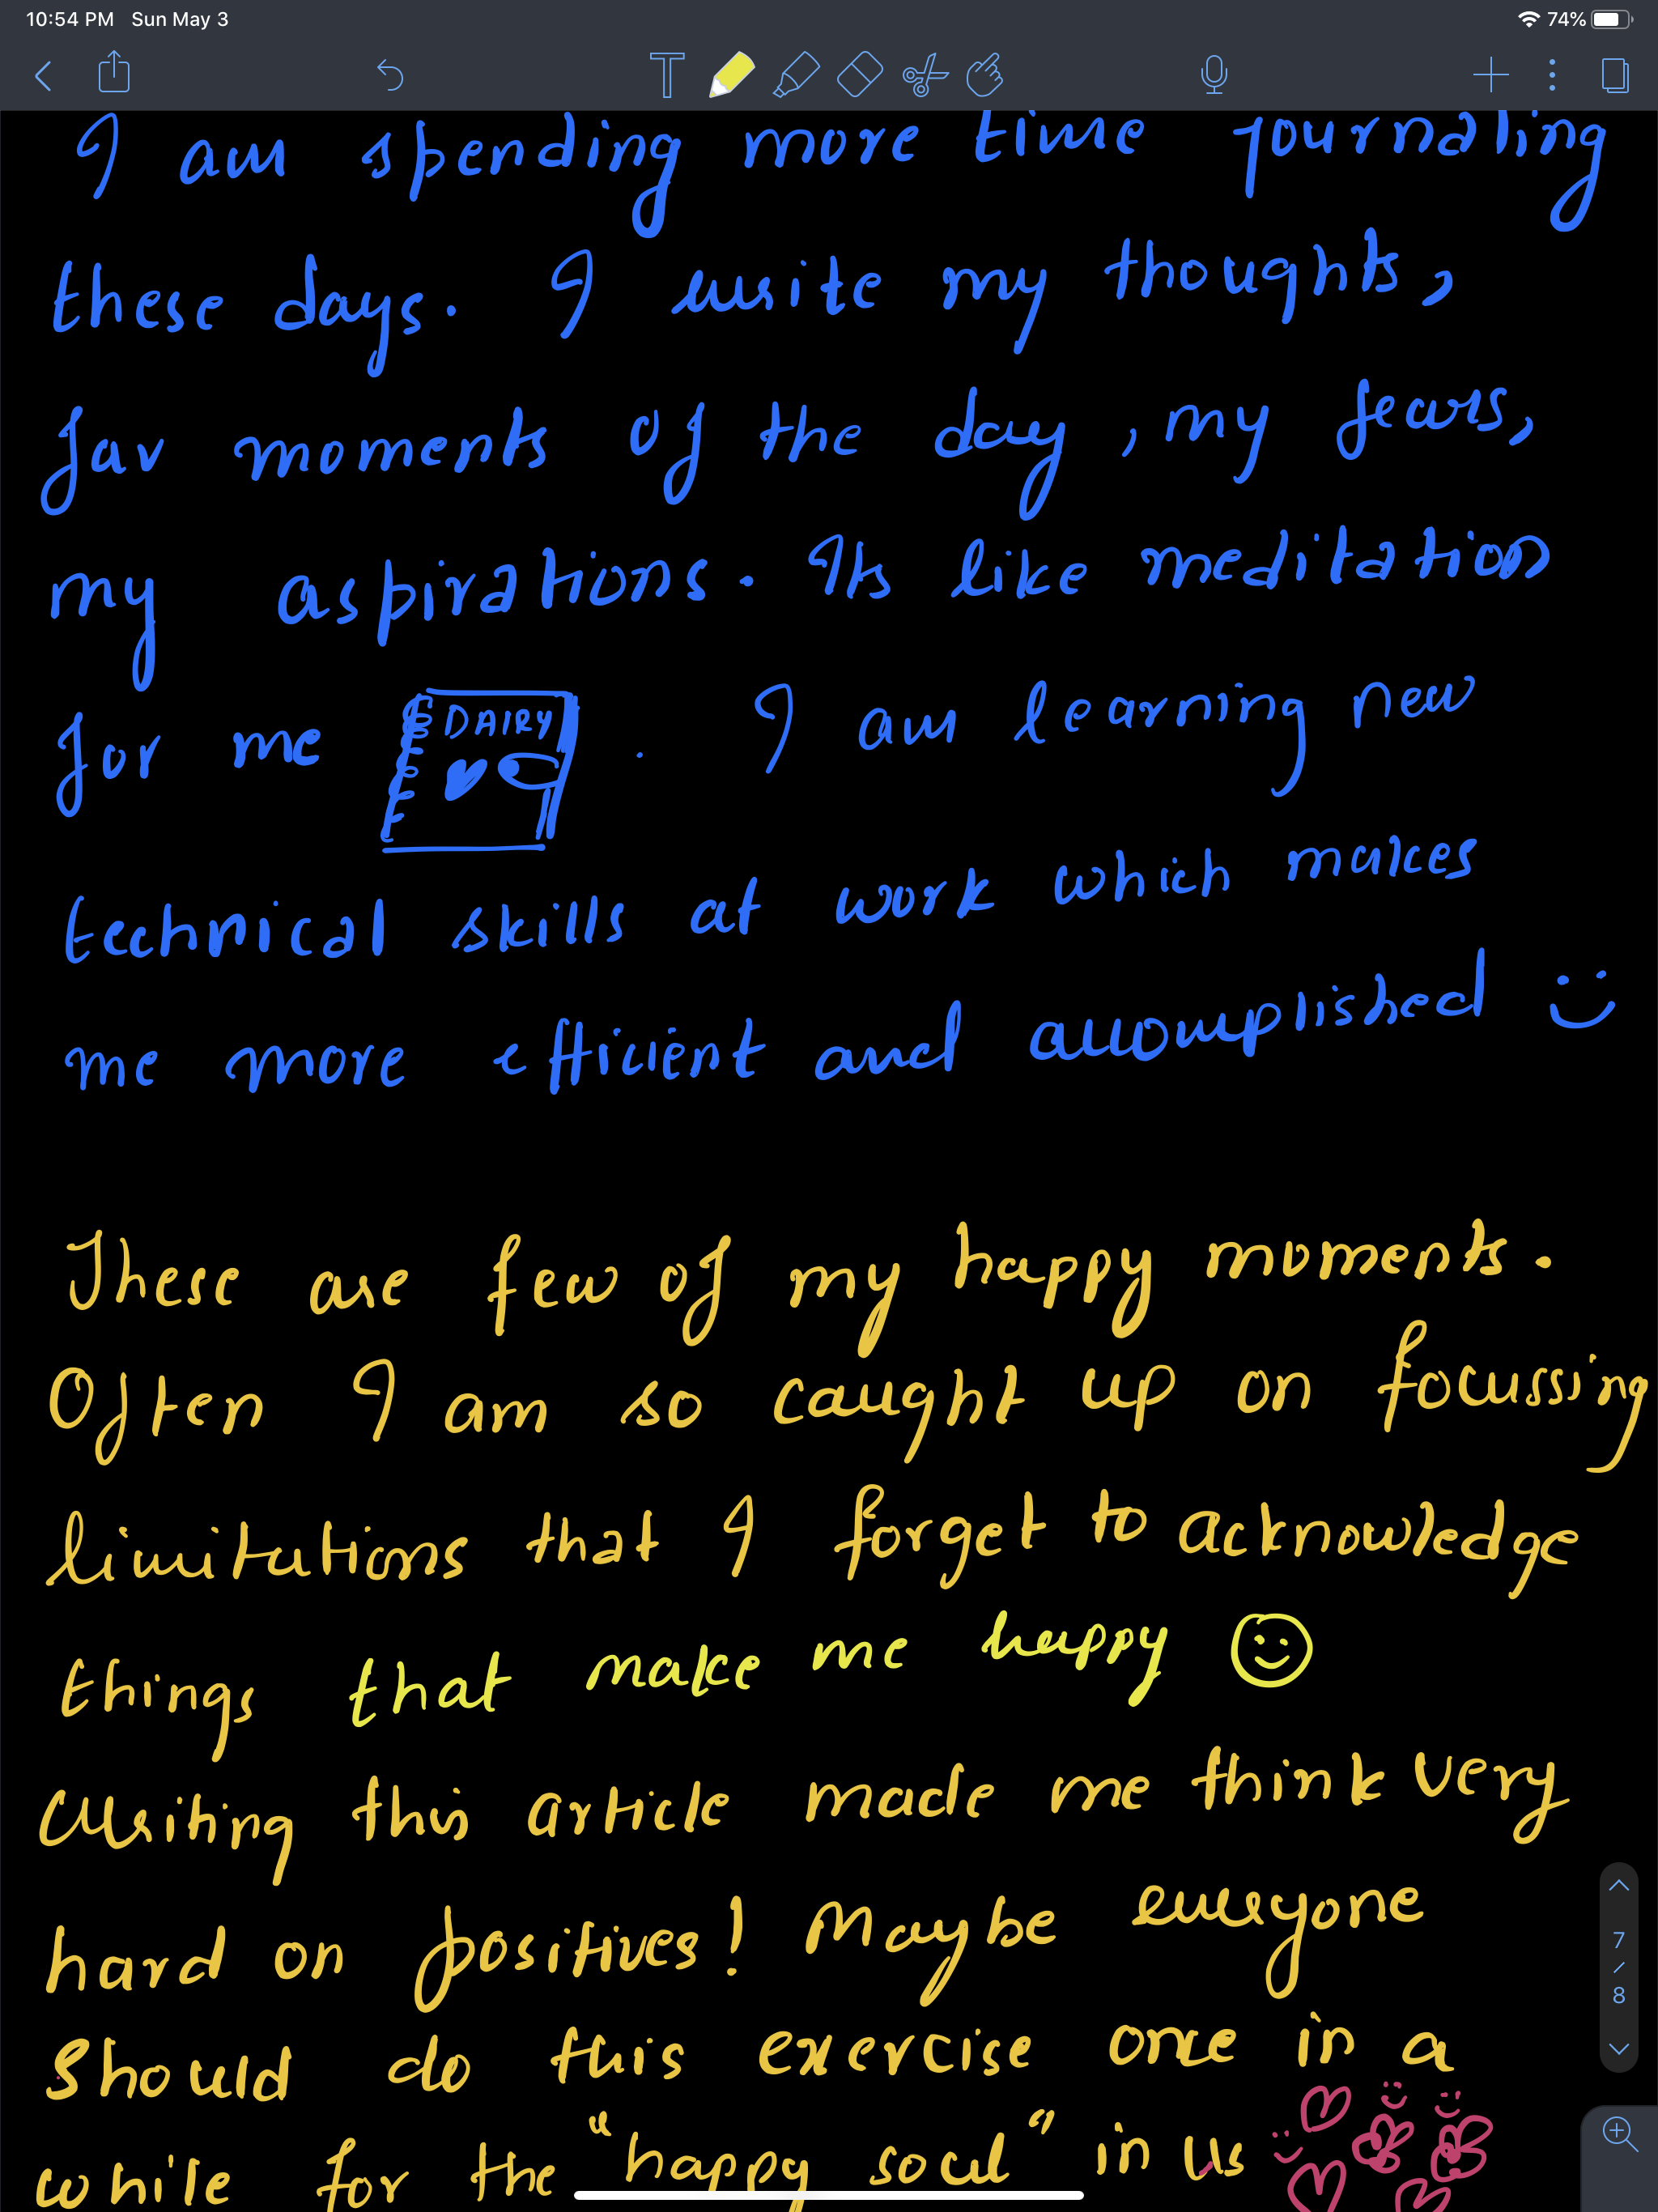 10:54 PM Sun May 3 74%
I am spending more time journaling
these days. I write my thoughts,
fav moments of the day, my fears,
my aspirations. Its like meditation
for me DAIRY . I am learning new
technical skills at work which makes
me more efficient and accomplished
These are few of my happy moments.
Often I am so caught up on focussing
limitations that I forget to acknowledge
things that make me happy
Writing this article made me think very
hard on positives! Maybe everyone
should do this exercise once in a
while for the "happy soul" in us
7
/
8